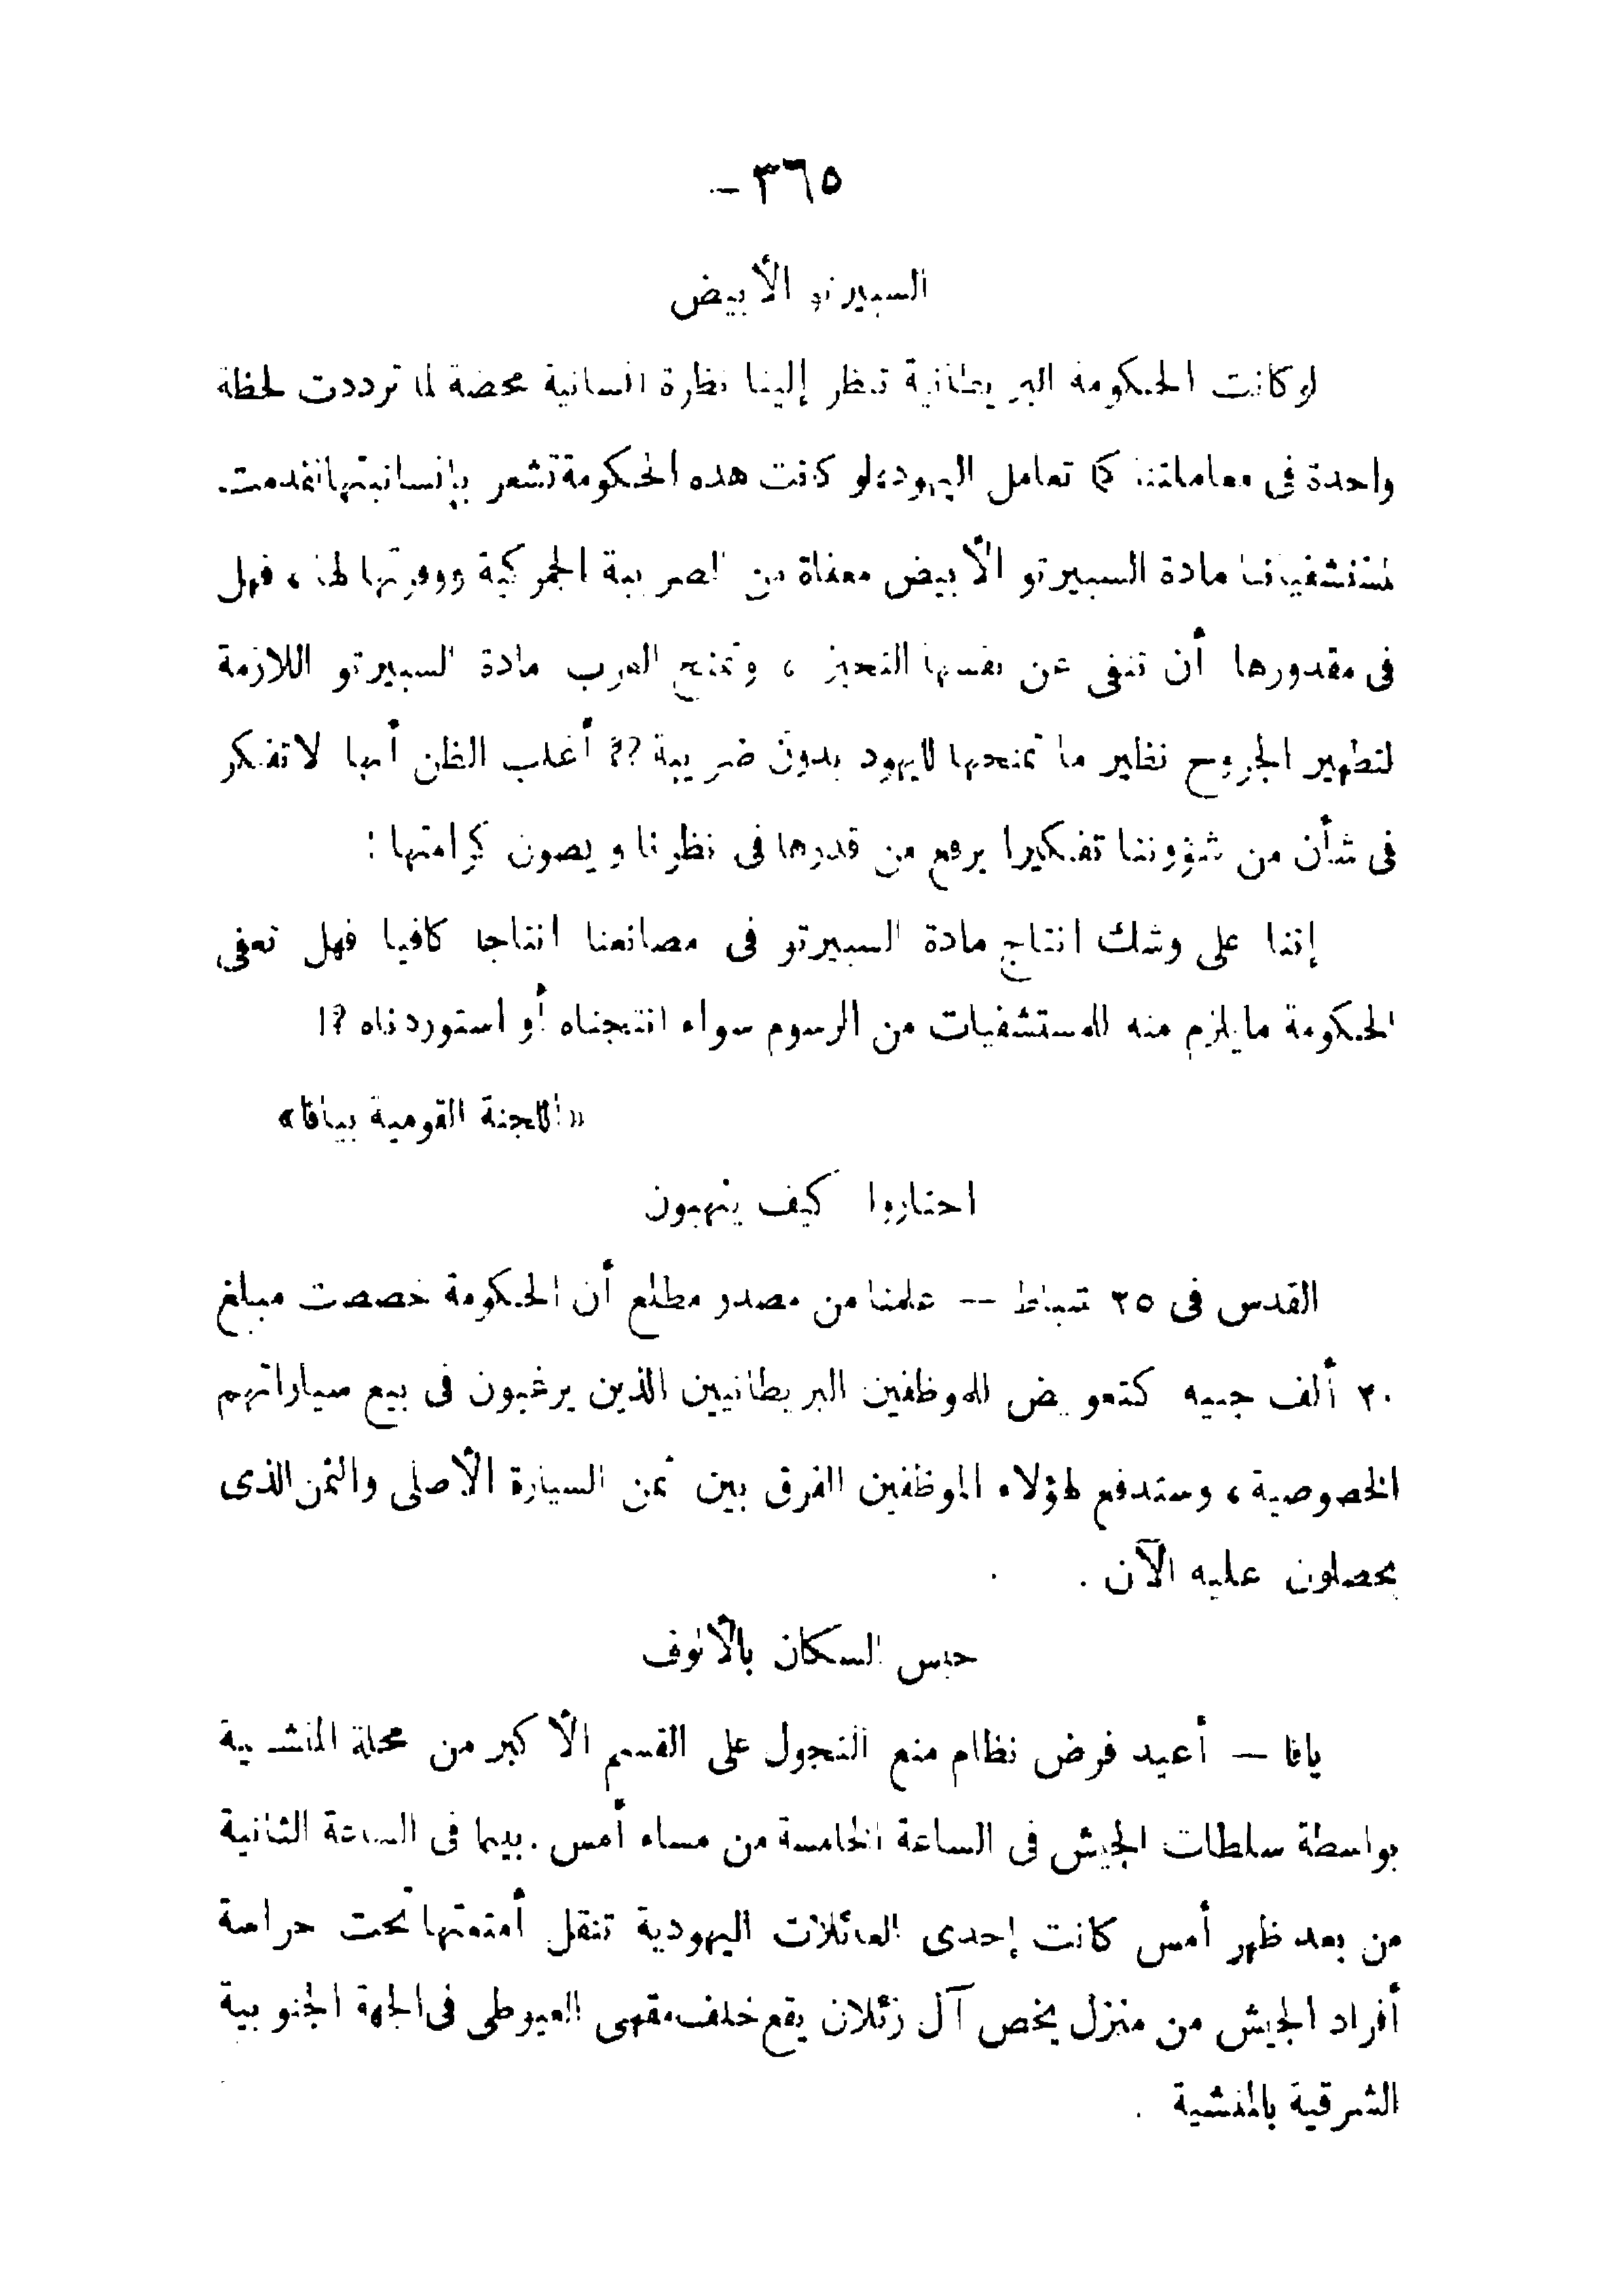 ٣٦٥ —
السبيرتو الأبيض
لو كانت الحكومة البريطانية تنظر إلينا نظرة انسانية محضة لما ترددت لحظة
واحدة فى معاملتنا كما تعامل اليهود، لو كانت هذه الحكومة تشعر بإنسانيتها لقدمت
لمستشفياتنا مادة السبيرتو الأبيض معفاة من الضريبة الجمركية ووفرتها لها ، فهل
فى مقدورها أن تنفى عن نفسها التحيز ، وتمنح العرب مادة السبيرتو اللازمة
لتطهير الجروح نظير ما تمنحها لليهود بدون ضريبة ؟؟ أغلب الظن أنها لا تفكر
فى شأن من شؤوننا تفكيرا يرفع من قدرها فى نظرنا ويصون كرامتها :
إننا على وشك انتاج مادة السبيرتو فى مصانعنا انتاجا كافيا فهل تعفى
الحكومة ما يلزم منه للمستشفيات من الرسوم سواء انتجناه أو استوردناه ؟!
«اللجنة القومية بيافا»
احتاروا كيف ينهبون
القدس فى ٢٥ شباط — علمنا من مصدر مطلع أن الحكومة خصصت مبلغ
٢٠ ألف جنيه كتعويض للموظفين البريطانيين الذين يرغبون فى بيع سياراتهم
الخصوصية ، وستدفع لهؤلاء الموظفين الفرق بين ثمن السيارة الأصلى والثمن الذى
يحصلون عليه الآن .
حبس السكان بالألوف
يافا — أعيد فرض نظام منع التجول على القسم الأكبر من محلة المنشية
بواسطة سلطات الجيش فى الساعة الخامسة من مساء أمس . بينما فى الساعة الثانية
من بعد ظهر أمس كانت إحدى العائلات اليهودية تنقل أمتعتها تحت حراسة
أفراد الجيش من منزل يخص آل زئلان يقع خلف مقهى العيوطى فى الجهة الجنوبية
الشرقية بالمنشية .